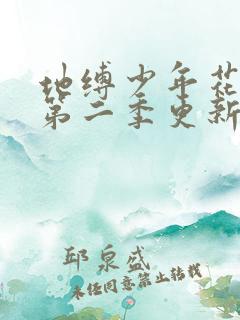 地缚少年花
第二季更新
邱泉盛
未经同意禁止转载